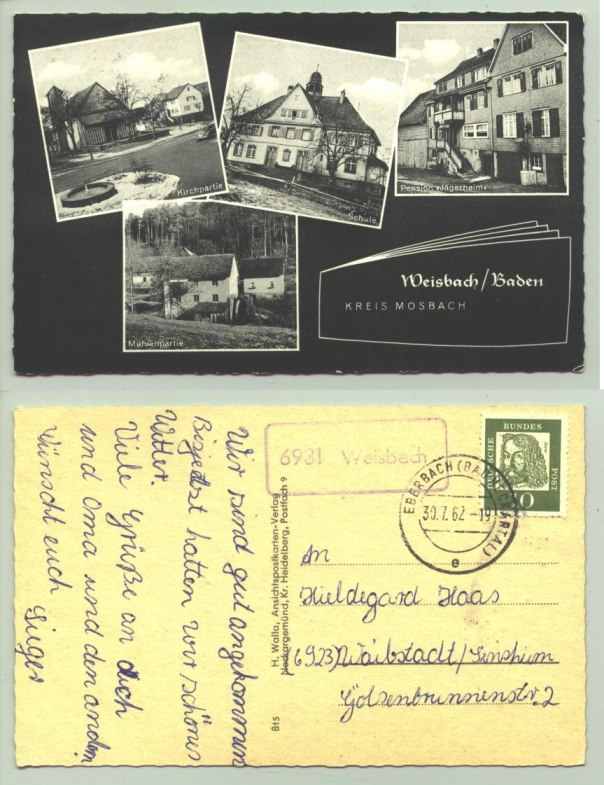 Kirchpartie
Schule
Pension »Jägerheim«
Mühlenpartie
Weisbach/Baden
KREIS MOSBACH
Wir sind gut angekommen
Bisjetzt hatten wir schönes
Wetter.
Viele Grüße an dich
und Oma und den andern
wünscht euch
6931 Weisbach
DEUTSCHE BUNDES POST
EBERBACH (BADEN)
30.7.62.-19
e
H. Walla, Ansichtspostkarten-Verlag
Neckargemünd, Kr. Heidelberg, Postfach 9
8t5
An
Hieldegard Haas
(6923) Waibstadt/Sinsheim